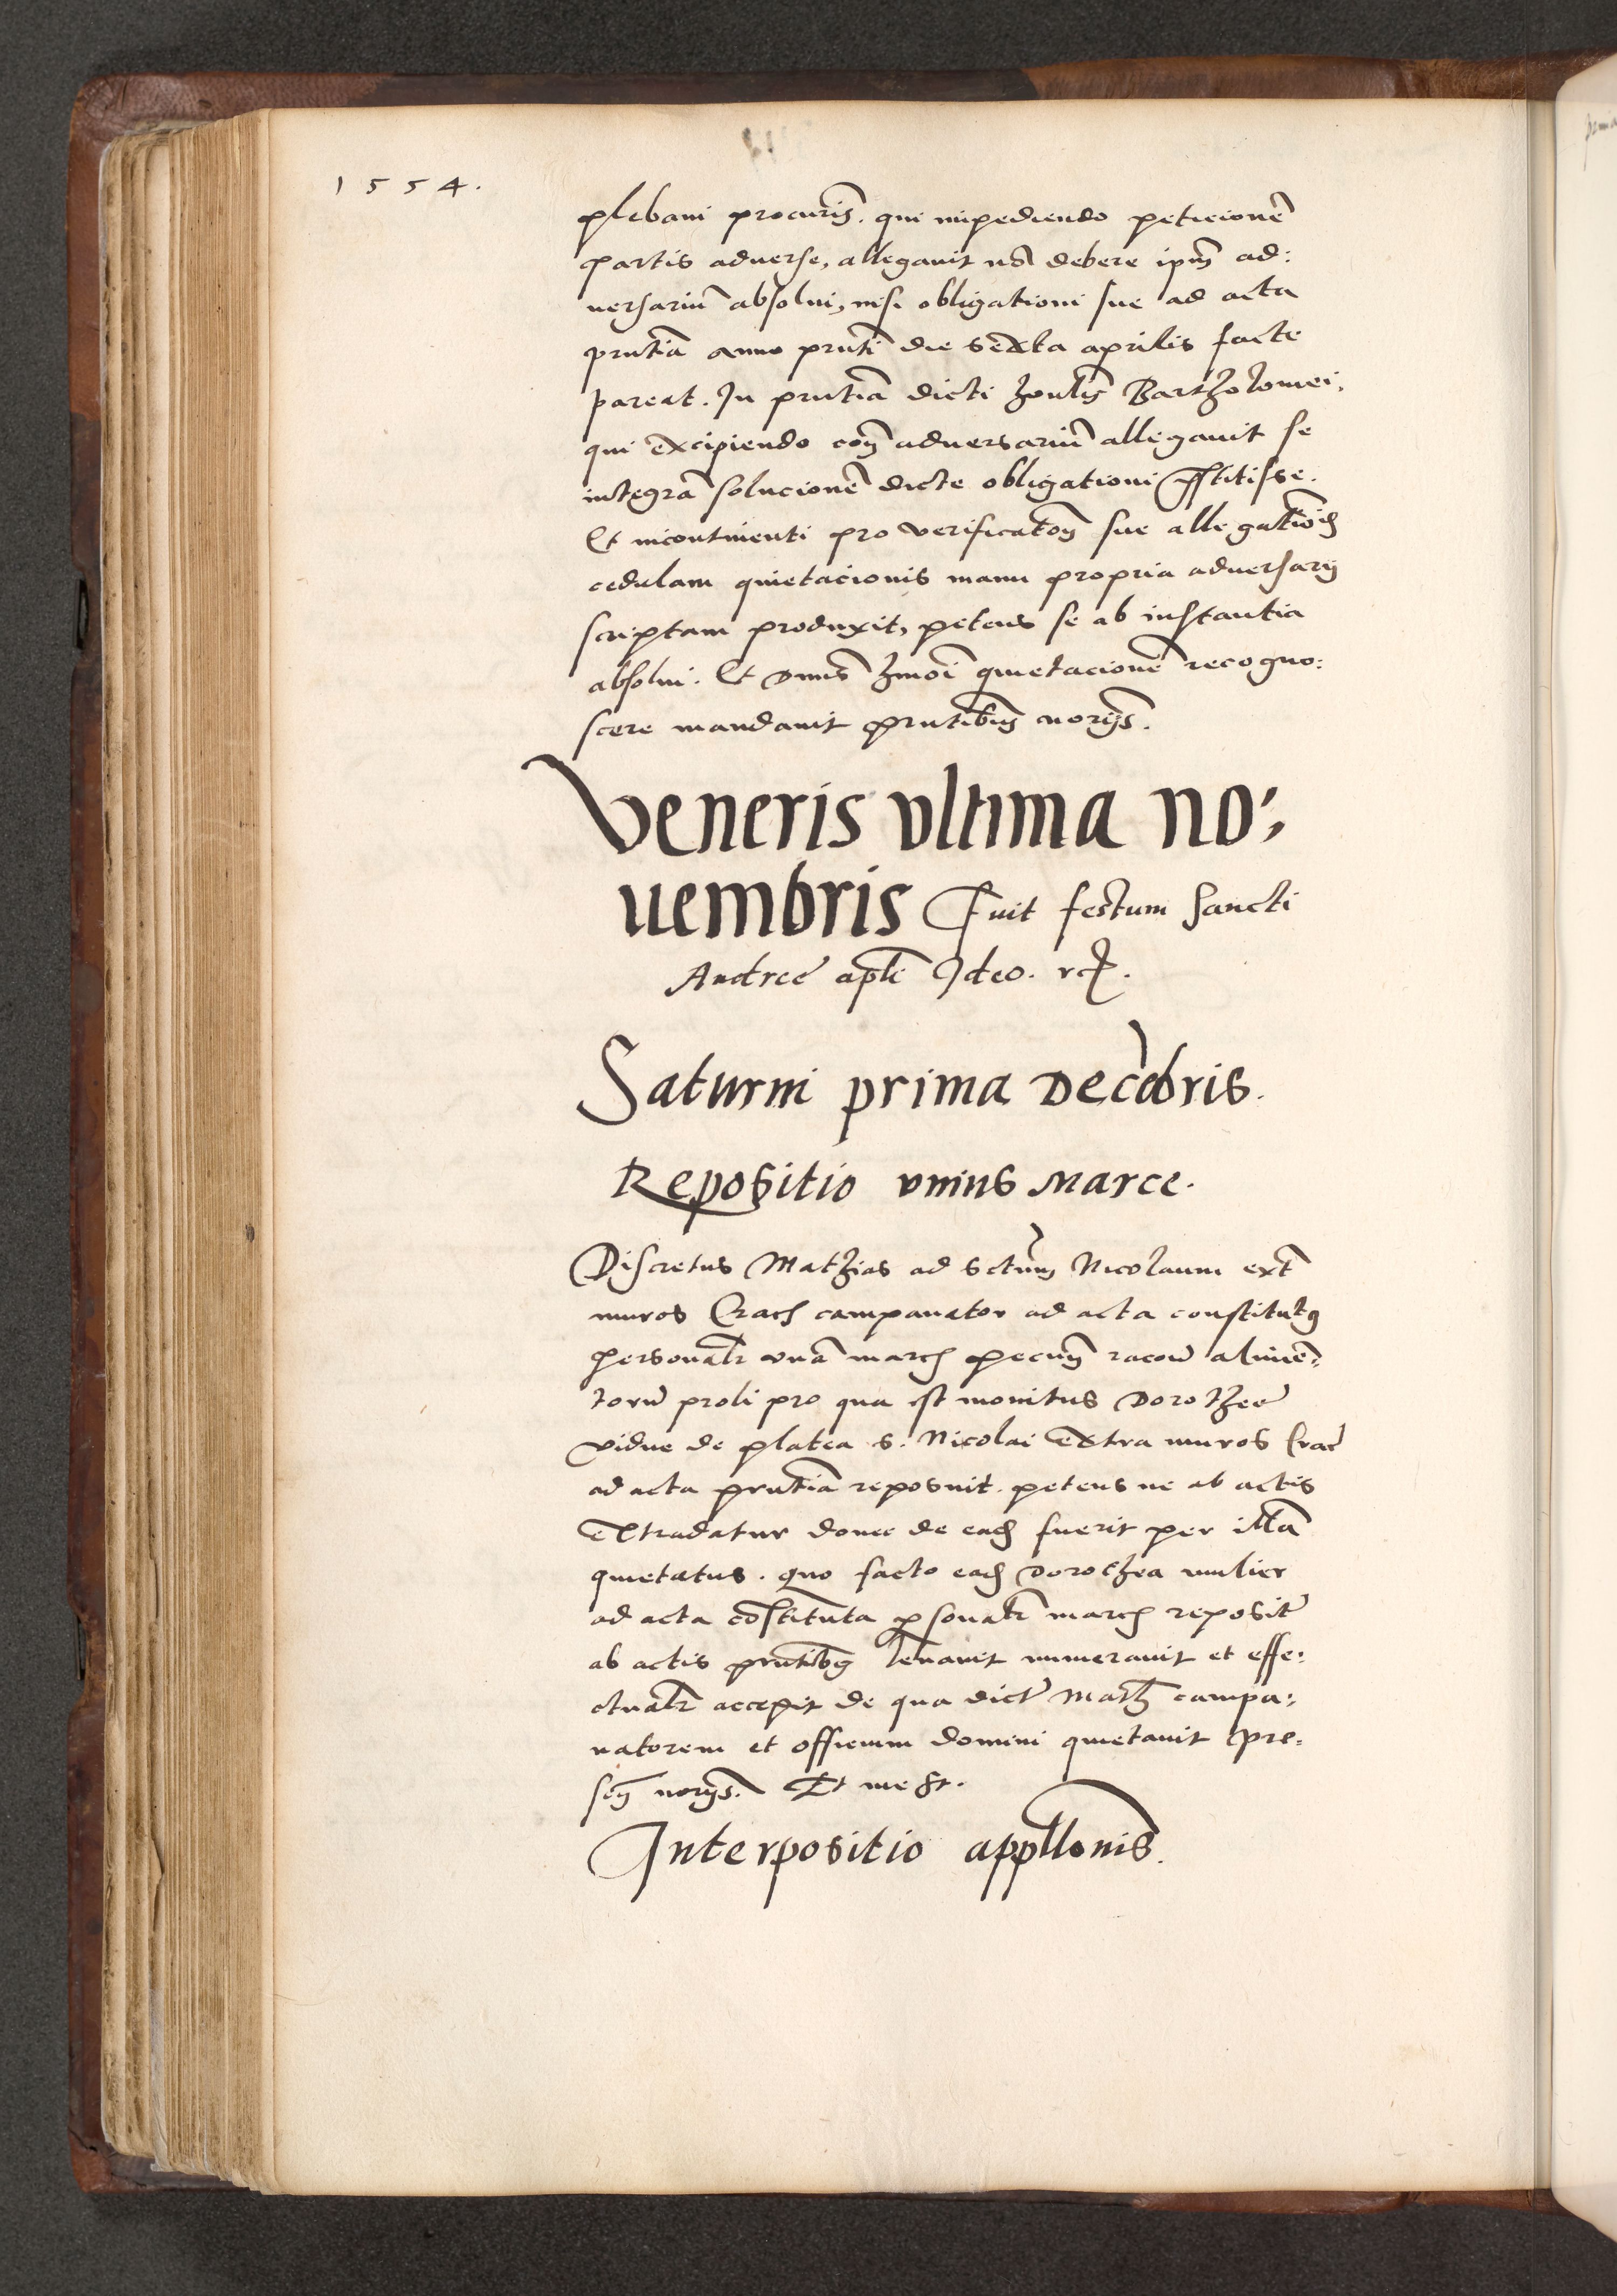 1554.
plebani procuris. qui impediendo peticionē
partis aduerse, allegauit nō debere ipm̄ ad:
uersariū absolui, nisi obligationi sue ad acta
pn̄tia anno pn̄ti die sexta aprilis facte
pareat. In pn̄tia dicti hon̄lis Bartholomei.
qui excipiendo con̄ aduersariū allegauit se
integrā solucionē dicte obligationi p̄stitisse.
Et incontinenti pro verificatōn sue allegatiōis
cedulam quietacionis manu propria aduersarij
scriptam produxit, petens se ab instantia
absolui. Et dn̄us hmōi quietacionē recogno:
scere mandauit pn̄tibus norijs.
Veneris vltima no:
uembris Fuit festum sancti
Andree apli Ideo. rc.
Saturni prima Decēbris.
Repositio vnius Marce.
Discretus Mathias ad sctum Nicolaum ext̄
muros Crac campanator ad acta constitutus
personalr vnā marcā pecun̄ racōe alimē:
torū proli pro qua est monitus Dorothee
vidue de platea s. Nicolai extra muros Crac̄
ad acta pn̄tia reposuit. petens ne ab actis
extradatur donec de eadē fuerit per illā
quietatus. quo facto eadē Dorothea mulier
ad acta cōstituta psonalr marcā repositā
ab actis pn̄tibus leuauit numerauit et effe:
ctualr accepit de qua dictū Math campa:
natorem et officium domini quietauit pre:
sen̄ norijs. Et me St.
Interpositio appllonis.